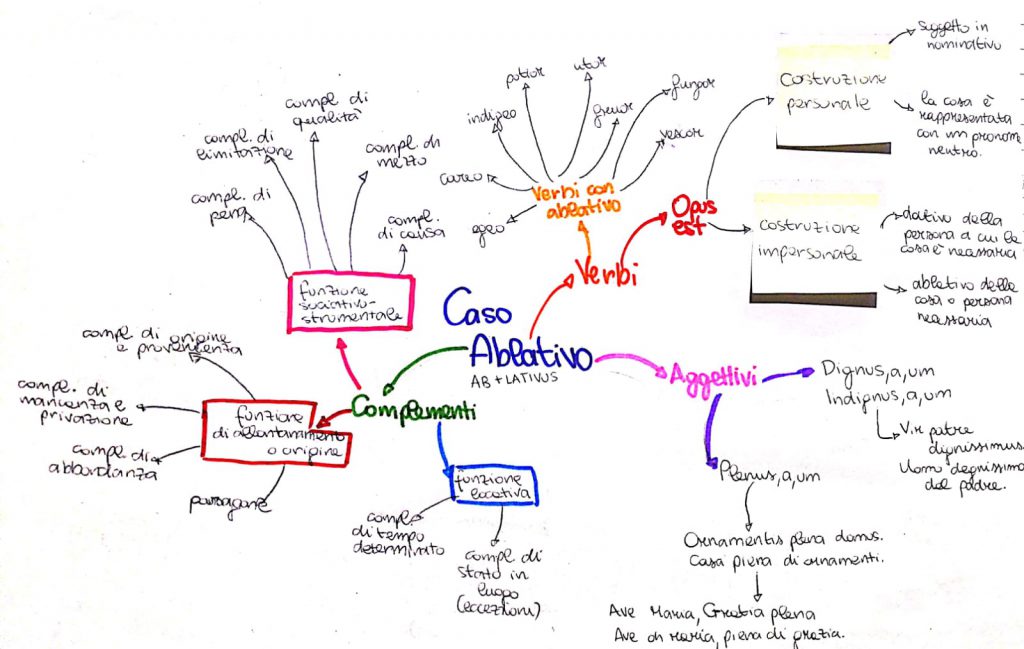 Caso
Ablativo
AB + LATIVUS
Verbi
Verbi con
ablativo
egeo
careo
indigeo
potior
utor
fruor
fungor
vescor
Opus
est
Costruzione
personale
soggetto in
nominativo
la cosa è
rappresentata
con un pronome
neutro.
costruzione
impersonale
dativo della
persona a cui la
cosa è necessaria
ablativo della
cosa o persona
necessaria
Aggettivi
Dignus, a, um
Indignus, a, um
Vir patre
dignissimus
Uomo degnissimo
del padre.
Plenus, a, um
Ornamentis plena domus.
Casa piena di ornamenti.
Ave Maria, Gratia plena
Ave oh Maria, piena di grazia.
Complementi
funzione
sociativo-
strumentale
compl. di
pena
compl. di
limitazione
compl. di
qualità
compl. di
mezzo
compl.
di causa
funzione
di allontanamento
o origine
compl. di origine
e provenienza
compl. di
mancanza e
privazione
compl. di
abbondanza
paragone
funzione
locativa
compl.
di tempo
determinato
compl. di
stato in
luogo
(eccezioni)